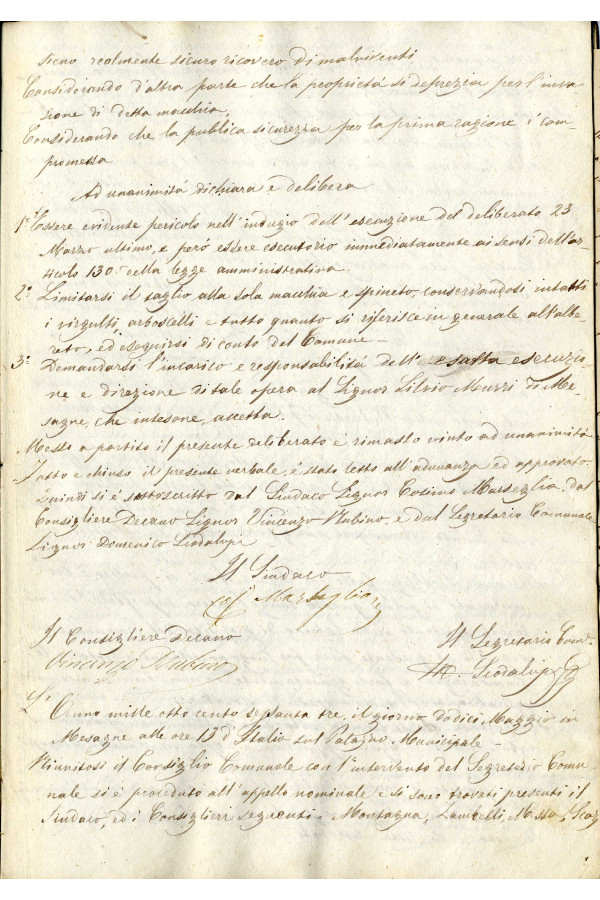 sieno realmente sicuro ricovero di malviventi
Considerando d'altra parte che la proprietà si deprezia per l'inva
sione di detta macchia,
Considerando che la publica sicurezza per la prima ragione è com-
promessa
Ad unanimità dichiara e delibera
1º Essere evidente pericolo nell'indugio dell'esecuzione del deliberato 23
Marzo ultimo, e però essere esecutorio immediatamente ai sensi dell'ar
ticolo 130 della legge amministrativa.
2º Limitarsi il taglio alla sola macchia e spineto, conservandosi intatti
i virgulti, arboscelli e tutto quanto si riferisce in generale all'albe
rato, ed eseguirsi di conto del Comune –
3º Demandarsi l'incarico e responsabilità dell'esatta esecuzio
ne e direzione di tale opera al Signor Silvio Murri di Me-
sagne, che intesone, accetta.
Messo a partito il presente deliberato è rimasto vinto ad unanimità
Fatto e chiuso il presente verbale, è stato letto all'adunanza ed approvato.
Quindi si è sottoscritto dal Sindaco Signor Cosimo Marseglia, dal
Consigliere Decano Signor Vincenzo Rubino, e dal Segretario Comunale
Signor Domenico Scodalupi
Il Sindaco
Marseglia
Il Consigliere Decano
Vincenzo Rubino
Il Segretario Com.
Scodalupi
L'Anno mille otto cento septanta tre, il giorno dodici Maggio in
Mesagne alle ore 13 d'Italia sul Palazzo Municipale –
Riunitosi il Consiglio Comunale con l'intervento del Segretario Comu
nale si è proceduto all'appello nominale e si sono trovati presenti il
Sindaco, ed i Consiglieri seguenti – Montagna, Zambelli, Messa,